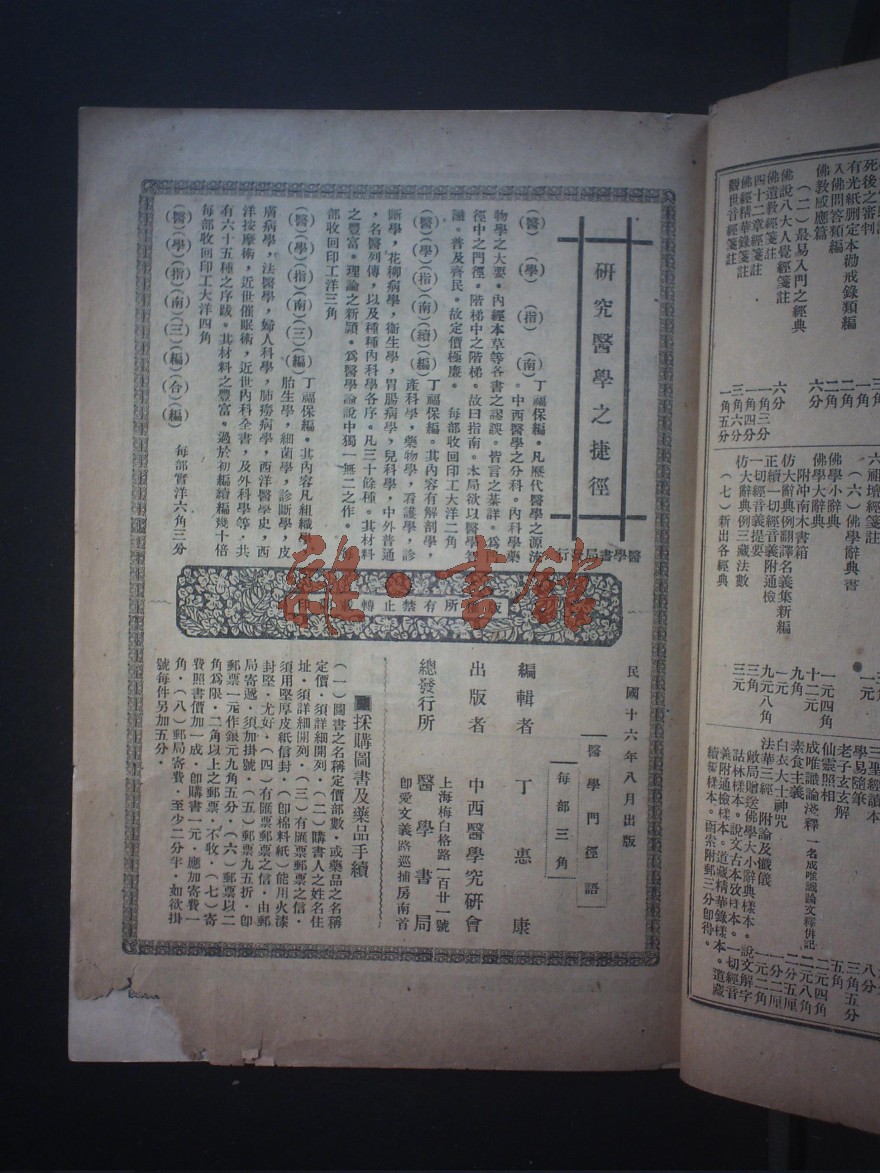 研究醫學之捷徑
醫學書局發行
(醫)(學)(指)(南)
丁福保編。凡歷代醫學之源流
。中西醫學之分科。內科學藥
物學之大要。內經本草等各書之謬誤。皆言之綦詳。爲
徑中之門徑。階梯中之階梯。故曰指南。本局欲以醫學智
識。普及齊民。故定價極廉。 每部收回印工大洋二角
(醫)(學)(指)(南)(續)(編)
丁福保編。其內容有解剖學，
產科學，藥物學，看護學，診
斷學，花柳病學，衞生學，胃腸病學，兒科學，中外普通
，名醫列傳，以及種種內科學各序。凡三十餘種。其材料
之豐富。理論之新穎。爲醫學論說中獨一無二之作。每
部收回印工洋三角
(醫)(學)(指)(南)(三)(編)
丁福保編。其內容凡組織學，
胎生學，細菌學，診斷學，皮
膚病學，法醫學，婦人科學，肺癆病學，西洋醫學史，西
洋按摩術，近世催眠術，近世內科全書，及外科學等，共
有六十五種之序跋。其材料之豐富。過於初編續編幾十倍
每部收回印工大洋四角
(醫)(學)(指)(南)(三)(編)(合)(編) 每部實洋六角三分
版權所有禁止轉載
民國十六年八月出版
醫學門徑語
每部三角
編輯者 丁惠康
出版者 中西醫學研究會
上海梅白格路一百廿一號
總發行所 醫學書局
卽愛文義路巡捕房南首
採購圖書及藥品手續
(一)圖書之名稱定價部數，或藥品之名稱
定價，須詳細開列，(二)購書人之姓名住
址，須詳細開列，(三)有匯票郵票之信，
須用堅厚皮紙信封，(卽棉料紙)能用火漆
封堅，尤好，(四)有匯票郵票之信，由郵
局寄遞，須加掛號，(五)郵票九五折，卽
郵票一元作銀元九角五分，(六)郵票以二
角爲限，二角以上之郵票，不收，(七)寄
費照書價加一成，卽購書一元，應加寄費一
角，(八)郵局寄費，至少二分半，如欲掛
號每件另加五分，
雜·書館
死後之審判
有光紙刪定本勸戒錄類編
入佛問答類編 二角
佛教感應篇 六分
(二)最易入門之經典
佛說八大人覺經箋註 六分
佛遺教經箋註
四十二章經箋註
佛經精華錄箋註
觀世音經箋註 一角五分
六祖壇經箋註
(六)佛學辭典書
佛學小辭典 一元四角
佛學大辭典 十二元
附沖南木書箱 九角
仿大辭典例翻譯名義集新編 一元
正續一切經音義附通檢 九元八角
一切經音義提要 三角
仿大辭典例三藏法數 三元
(七)新出各經典
三聖經讀本
學易隨筆
老子玄玄解
仙靈照相
成唯識論淺釋 一名成唯識論文釋倂記
素食主義
白衣大士神咒
法華三經 附論及懺儀
敝局贈送佛學大小辭典樣本。說文解字
詁林樣本。說文古本攷樣本。一切經音
義附通檢樣本。道藏精華錄樣本。道藏
續編樣本。函索附郵三分卽得。